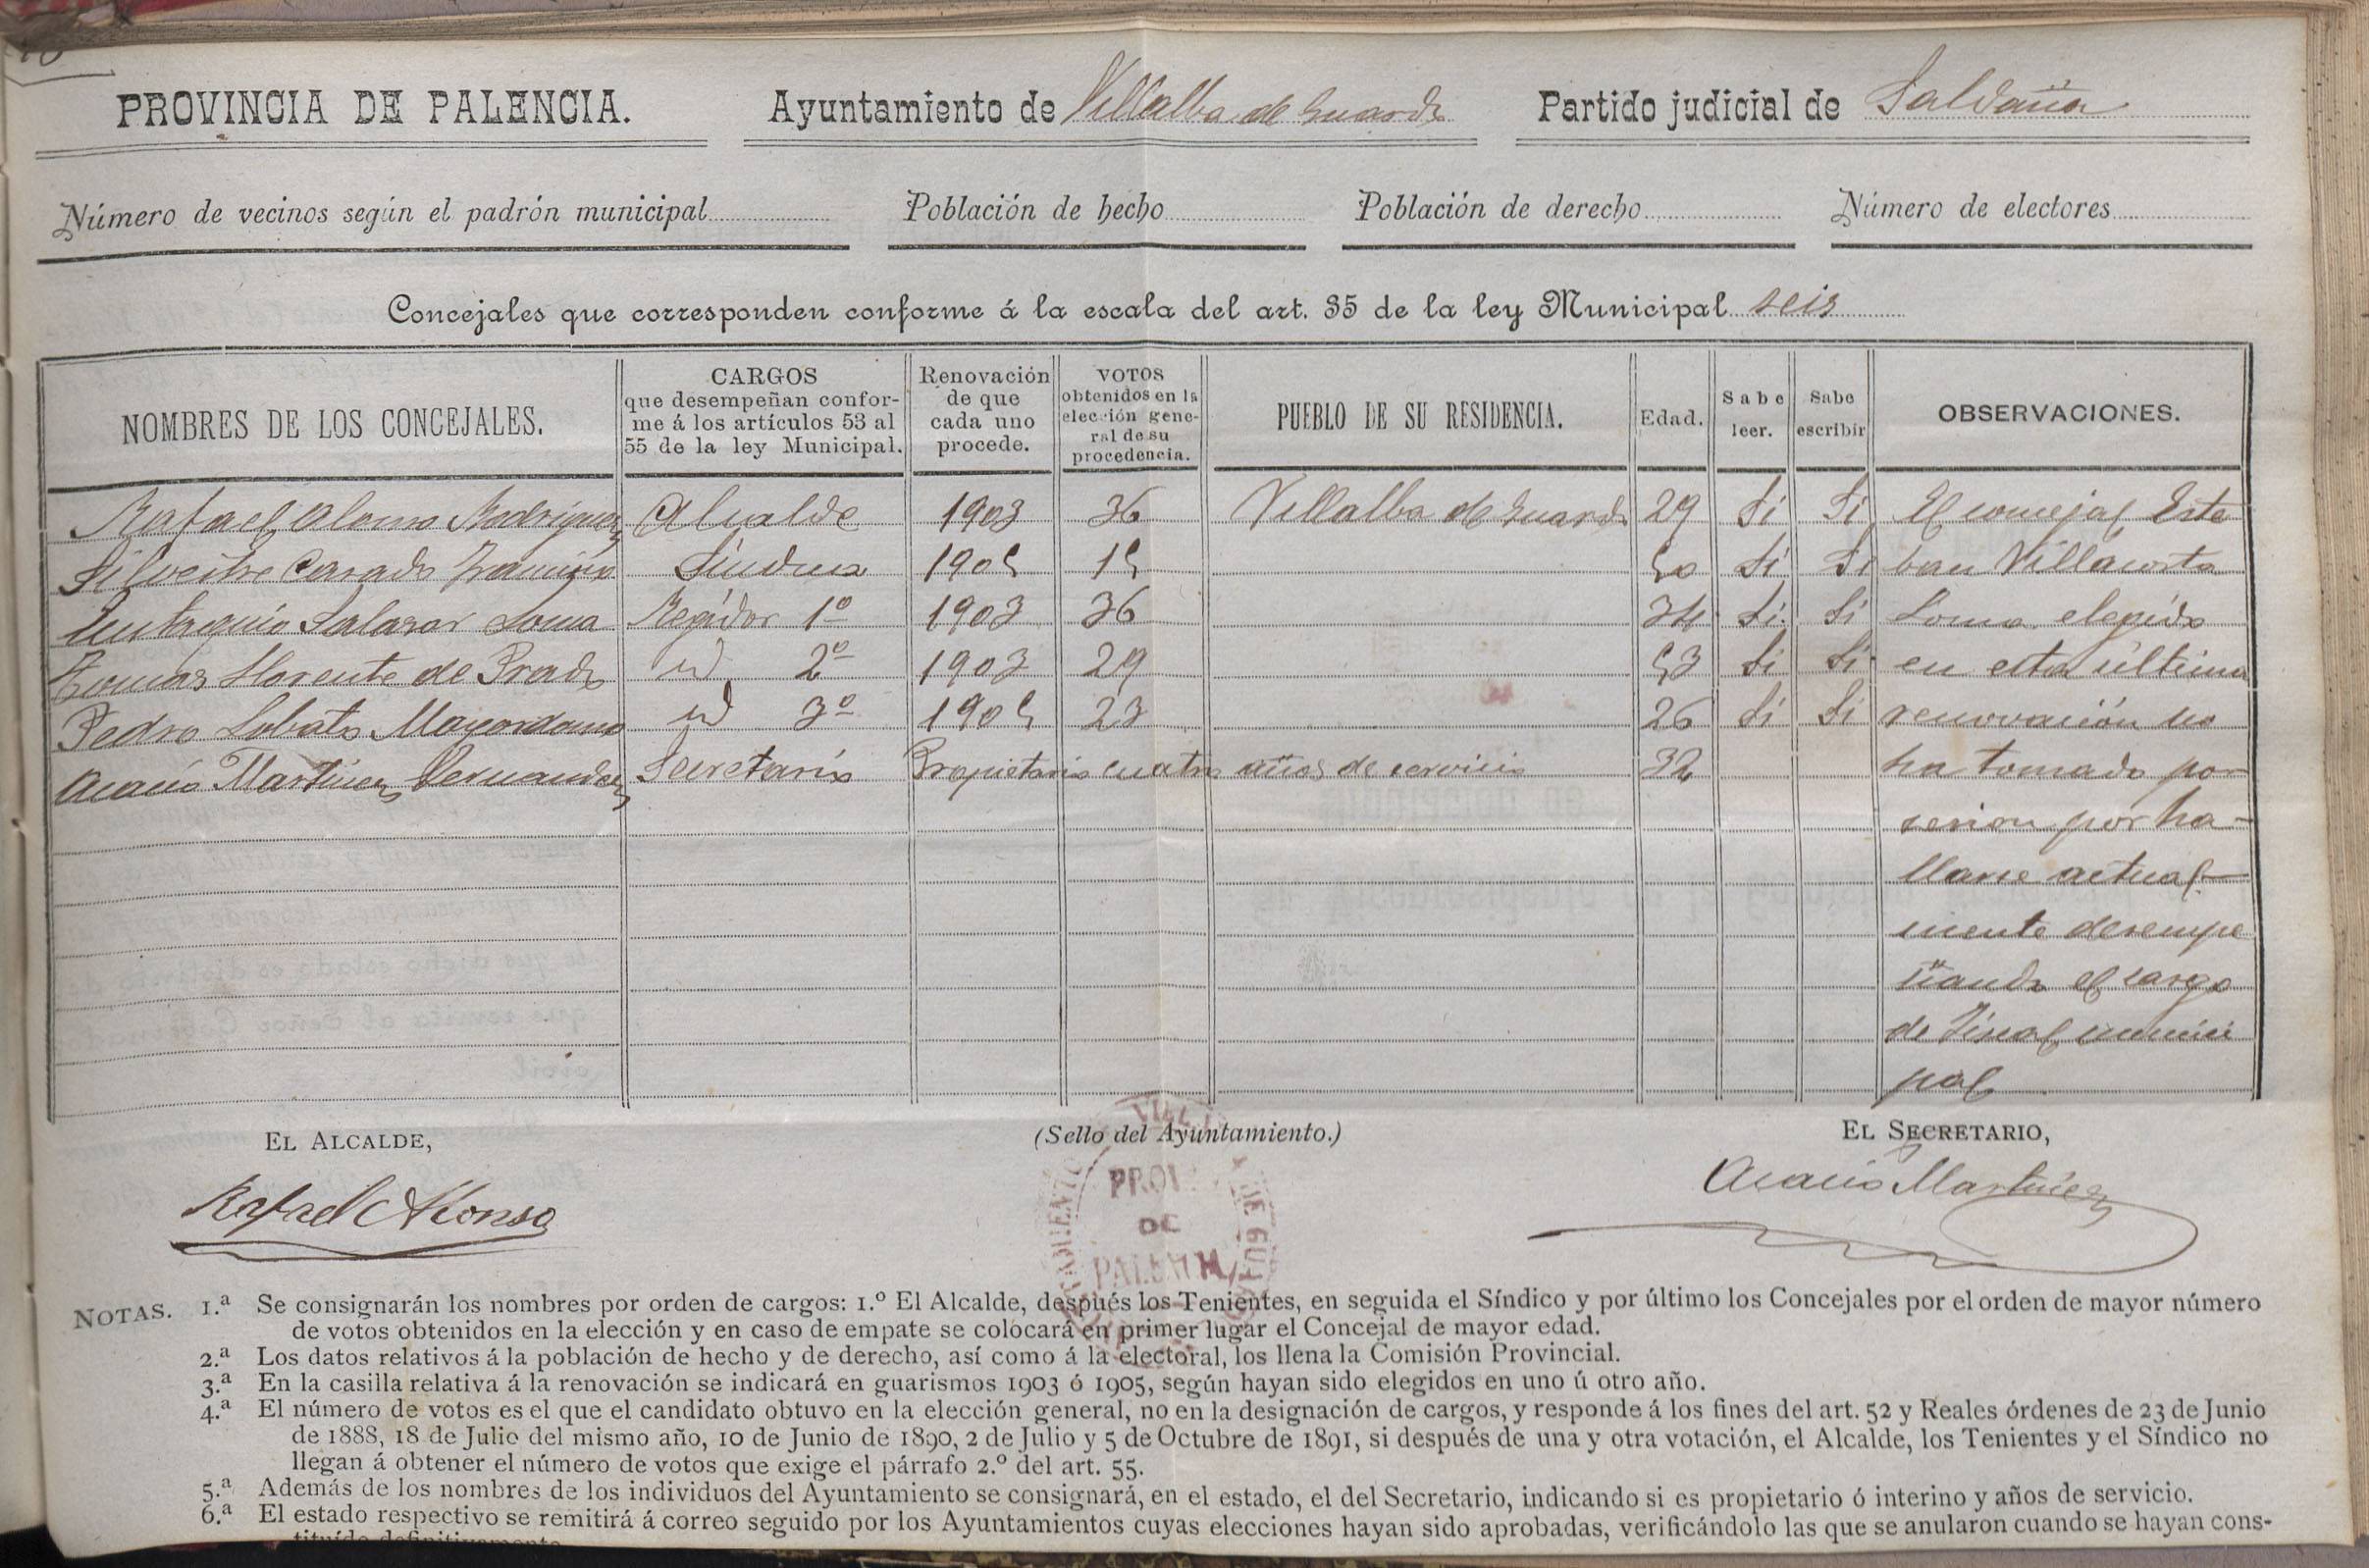 PROVINCIA DE PALENCIA. Ayuntamiento de Villalba de Guardo Partido judicial de Saldaña
Número de vecinos según el padrón municipal Población de hecho Población de derecho Número de electores
Concejales que corresponden conforme á la escala del art. 35 de la ley Municipal seis
NOMBRES DE LOS CONCEJALES. CARGOS que desempeñan confor- me á los artículos 53 al 55 de la ley Municipal. Renovación de que cada uno procede. VOTOS obtenidos en la elección gene- ral de su procedencia. PUEBLO DE SU RESIDENCIA. Edad. Sabe leer. Sabe escribir OBSERVACIONES.
Rafael Alonso Rodriguez Alcalde 1903 36 Villalba de Guardo 29 Si Si El concejal Este
Silvestre Casado Síndico 1905 15 50 Si Si ban Villacorta
Eutroquio Salazar Loma Regidor 1º 1903 36 34 Si Si Loma elegido
Tomas Llorente de Prado id 2º 1903 29 53 Si Si en esta última
Pedro Lobato Mayordomo id 3º 1905 23 26 Si Si renovación no
Acacio Martinez Hernandez Secretario Propietario cuatro años de servicio 32 ha tomado po
sesion por ha-
llarse actual-
mente desempe
ñando el cargo
de Fiscal munici
pal
EL ALCALDE, (Sello del Ayuntamiento.) EL SECRETARIO,
Rafael Alonso Acacio Martinez
PROV.
DE
PALENCIA
NOTAS. 1.ª Se consignarán los nombres por orden de cargos: 1.º El Alcalde, después los Tenientes, en seguida el Síndico y por último los Concejales por el orden de mayor número
de votos obtenidos en la elección y en caso de empate se colocará en primer lugar el Concejal de mayor edad.
2.ª Los datos relativos á la población de hecho y de derecho, así como á la electoral, los llena la Comisión Provincial.
3.ª En la casilla relativa á la renovación se indicará en guarismos 1903 ó 1905, según hayan sido elegidos en uno ú otro año.
4.ª El número de votos es el que el candidato obtuvo en la elección general, no en la designación de cargos, y responde á los fines del art. 52 y Reales órdenes de 23 de Junio
de 1888, 18 de Julio del mismo año, 10 de Junio de 1890, 2 de Julio y 5 de Octubre de 1891, si después de una y otra votación, el Alcalde, los Tenientes y el Síndico no
llegan á obtener el número de votos que exige el párrafo 2.º del art. 55.
5.ª Además de los nombres de los individuos del Ayuntamiento se consignará, en el estado, el del Secretario, indicando si es propietario ó interino y años de servicio.
6.ª El estado respectivo se remitirá á correo seguido por los Ayuntamientos cuyas elecciones hayan sido aprobadas, verificándolo las que se anularon cuando se hayan cons-
tituído definitivamente